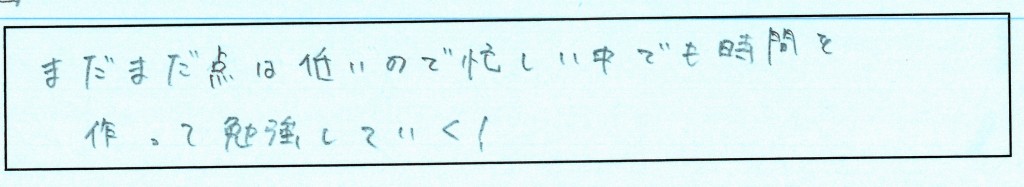 まだまだ点は低いので忙しい中でも時間を
作って勉強していく!